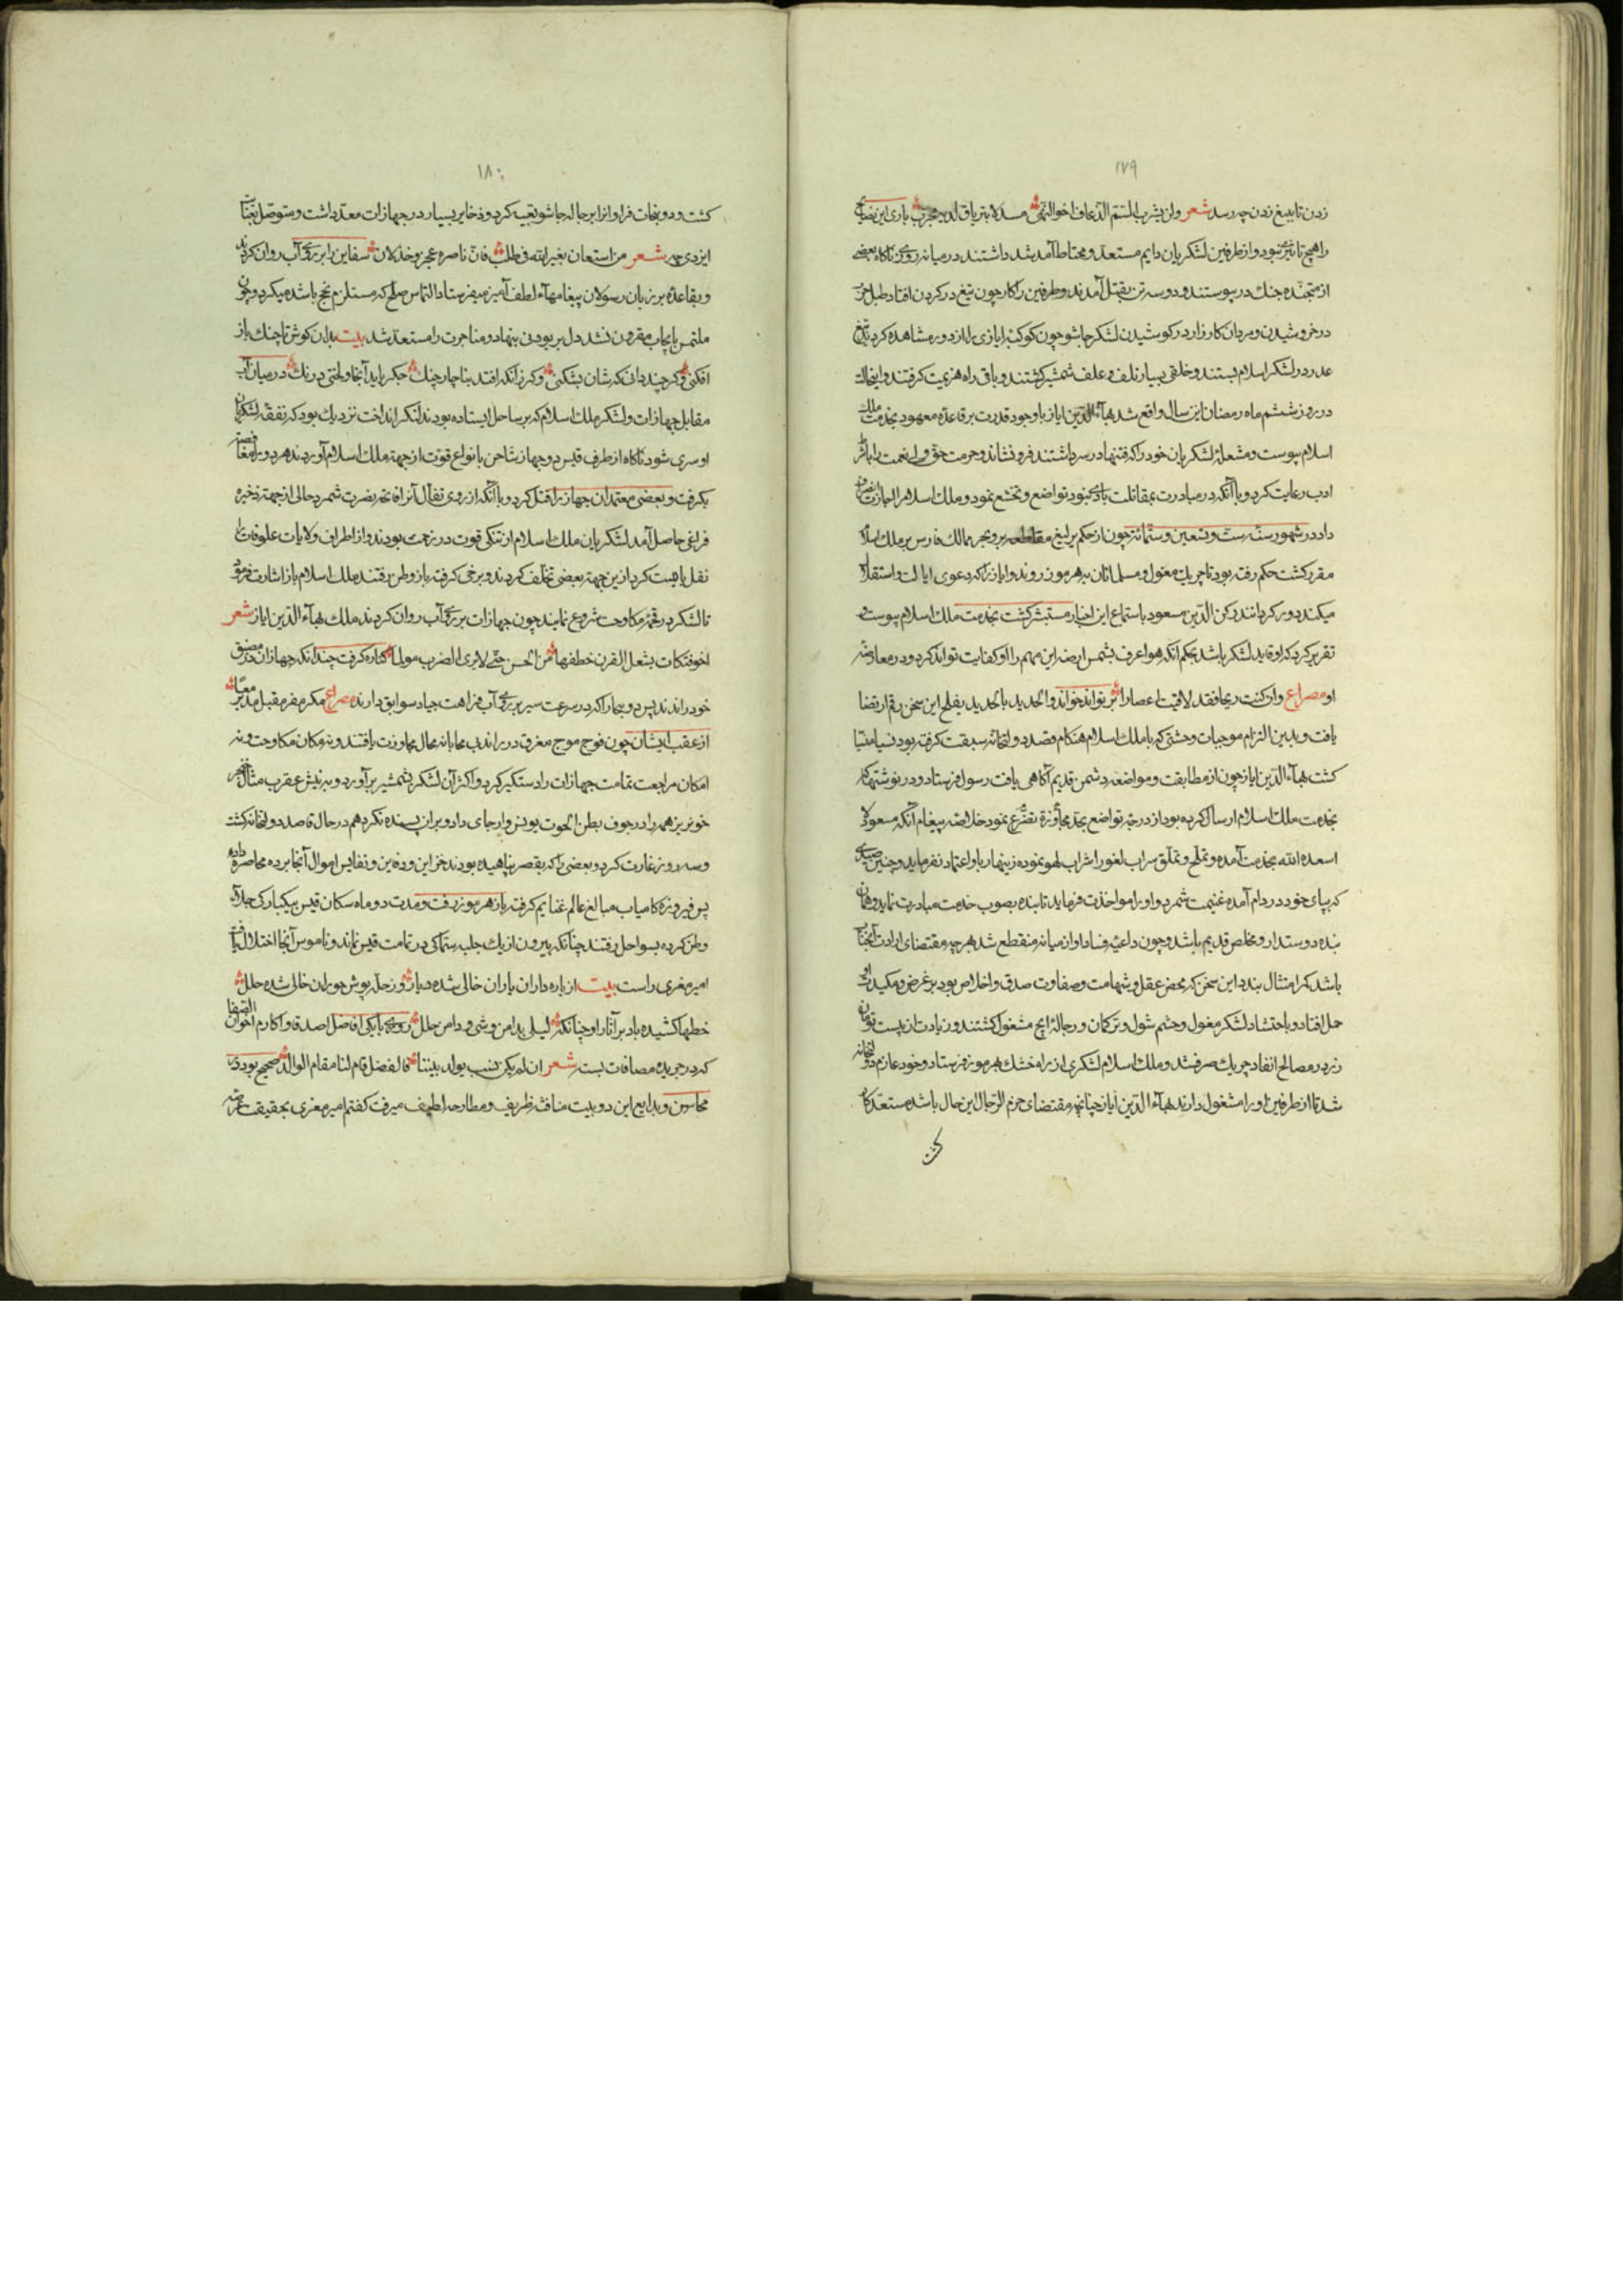 ۱۷۹
زدن تا بتیغ زدن چه رسد شعر ولن یشرب السم الذعاف اخو النهی مدلا بتریاق لدیه مجرب باری این نصایح
را هیچ تاثیر نبود و از طرفین لشکریان دایم مستعد و محتاط آمد شد داشتند در میانه روزی ناکاه بعضی
از متجنده جنك در پیوستند و دو سه تن بقتل آمدند و طرفین را کار چون تیغ در کردن افتاد طبل
در خروشیدن و مردان کارزار در کوشیدن لشکر جاشو چون کوکبه ایازی را از دور مشاهده کردند تیغ
غدر در لشکر اسلام بستند و خلقی بسیار تلف و علف شمشیر کشتند و باقی راه هزیمت کرفتند و این حالت
در روز ششم ماه رمضان این سال واقع شد بهاء الدین ایاز با وجود قدرت بر قاعده معهود بخدمت ملك
اسلام پیوست و مشعله لشکریان خود را که فتنها در سر داشتند فرو نشاند و حرمت حق ولی نعمت را
ادب رعایت کرد و با آنکه در مبادرت بمقاتلت بادی نبود تواضع و تخشع نمود و ملك اسلام را اجازت انصراف
داد در شهور سنه ست و تسعین و ستمائة چون از حکم یرلیغ مقاطعه بر و بحر ممالك فارس بر ملك اسلام
مقرر کشت حکم رفته بود تا چریك مغول و مسلمانان بهرموز روند و ایاز را که دعوی ایالت و استقلال
میکند دور کردانند رکن الدین مسعود باستماع این اخبار مستبشر کشت بخدمت ملك اسلام پیوست و
تقریر کرد که او قاید لشکر باشد بحکم آنکه هو اعرف بشمس ارضه این مهم را او کفایت تواند کرد و در معارضه
او مصراع وان کنت ریحا فقد لاقیت اعصارا بر تواند خواند و الحدید بالحدید یفلح این سخن رقم ارتضا
یافت و بدین التزام موجبات وحشتی که با ملك اسلام هنکام قصد دولتخانه سبقت کرفته بود نسیا منسیا
کشت بهاء الدین ایاز چون از مطابقت و مواضعه دشمن قدیم آکاهی یافت رسول فرستاد و در نوشتها که
بخدمت ملك اسلام ارسال کرده بود از درجه تواضع بحد مجاوزة تضرع نمود خلاصه پیغام آنکه مسعود لا
اسعده الله بخدمت آمده و تملح و تملق سراب لغو را شراب لهو نموده زینهار باو اعتماد نفرماید و چنین صیدی
که بپای خود در دام آمده غنیمت شمرد و او را مواخذت فرماید تا بنده بصوب خدمت مبادرت نماید و همان
بنده دوستدار و مخلص قدیم باشد و چون داعیه فساد او از میانه منقطع شد بهر چه مقتضای ارادت آنجناب
باشد کمر امتثال بندد این سخن که محض عقل و شهامت و صفاوت صدق و اخلاص بود بر غرض و مکیدت او
حمل افتاد و باحتشاد لشکر مغول و حشم شول و ترکمان و رجاله ایج مشغول کشتند و زیادت از بیست تومان
زر در مصالح انفاد چریك صرف شد و ملك اسلام لشکری از راه خشك بهرموز فرستاد و خود عازم دولتخانه
شد تا از طرفین او را مشغول دارند بهاء الدین ایاز چنانچه مقتضای حزم الرجال این حال باشد مستعد کار
کشت
۱۸۰
کشت و دونجات فراوانرا برجاله جاشو تعبیه کرد و ذخایر بسیار در جهازات معد داشت و متوصل بعنایت
ایزدی چه شعر من استعان بغیر الله فی طلب فان ناصره عجز و خذلان سفاین را بر روی آب روان کردند
و بقاعده بر زبان رسولان پیغامهاء لطف آمیز میفرستاد التماس صلح که مستلزم نجح باشد میکرد و چون
ملتمس بایجاب مقرون نشد دل بر بودنی بنهاد و مناجزت را مستعد شد بیت بدان کوش تا جنك باز
افکنی وکر چند دانی که شان بشکنی وکر زآنکه افتد بناچار جنك جکر باید آنجا و لختی درنك در میان آب
مقابل جهازات و لشکر ملك اسلام که بر ساحل ایستاده بودند لنکر انداخت نزدیك بود که نفقه لشکریان
او سری شود ناکاه از طرف قیس دو جهاز شاحن بانواع قوت از جهة ملك اسلام آوردند هر دو را مغافصة
بکرفت و بعضی معتمدان جهاز را قتل کرد و با آنکه از روی تفأل آنرا فاتحه نصرت شمرد حالی از جهة ذخیره
فراغی حاصل آمد لشکریان ملك اسلام از تنکی قوت در زحمت بودند و از اطراف ولایات علوفات را
نقل بایست کرد ازین جهة بعضی تخلف کردند و برخی کرفته باز وطن رفتند ملك اسلام باز اشارت فرمود
تا لشکر در مکاوحت شروع نمایند چون جهازات بر روی آب روان کردند ملك بهاء الدین ایاز شعر
اخو فتکات یشغل القرن خطفها من الحس حتی لا یری الضرب مولما کناره کرفت چندانکه جهازات در مضیق
خود راندند پس دو بحار را که در سرعت سیر بر روی آب فراهت جیاد سوابق دارند مصراع مکر مفر مقبل مدبر معا
از عقب ایشان چون فوج موج مغرق در راند بی محابا نه مجال مجاوزت یافتند و نه مکان مکاوحت و نه
امکان مراجعت تمامت جهازات را دستکیر کرد و اکثر آن لشکر بشمشیر بر آورد و بزنیش عقرب مثال خنجر
خونریز همه را در جوف بطن الحوت یونس وار جای داد و بران بسنده نکرد هم در حال قاصد دولتخانه کشت
و سه روز غارت کرد و بعضی را که بقصر پناهیده بودند خزاین و دفاین و نفایس اموال آنجا برده محاصره داده
پس فیروز و کامیاب مبالغ عالم غنایم کرفته باز هرموز رفت و مدت دو ماه سکان قیس بیکبارکی جلاء
وطن کرده بسواحل رفتند چنانکه بیرون از یك جلب سماکی در تمامت قیس نماند و ناموس آنجا اختلال یافت
امیر مغزی راست بیت از یاره داران یاران خالی شده دیار و ز حله پوش حوران خالی شده حلل
خطها کشیده باد بر آثار او چنانکه لیلی بدامن وشی و دامن حلل روزی با یکی افاضل اصدقا و اکارم اخوان الصفا
که در جریده مصافات بست شعر ان لم یکن نسب یولد بیننا فالفضل قام لنا مقام الوالد صحیح بود در
محاسن و بدایع این دو بیت منافثه ظریف و مطارحه لطیف میرفت کفتم امیر مغزی بحقیقت